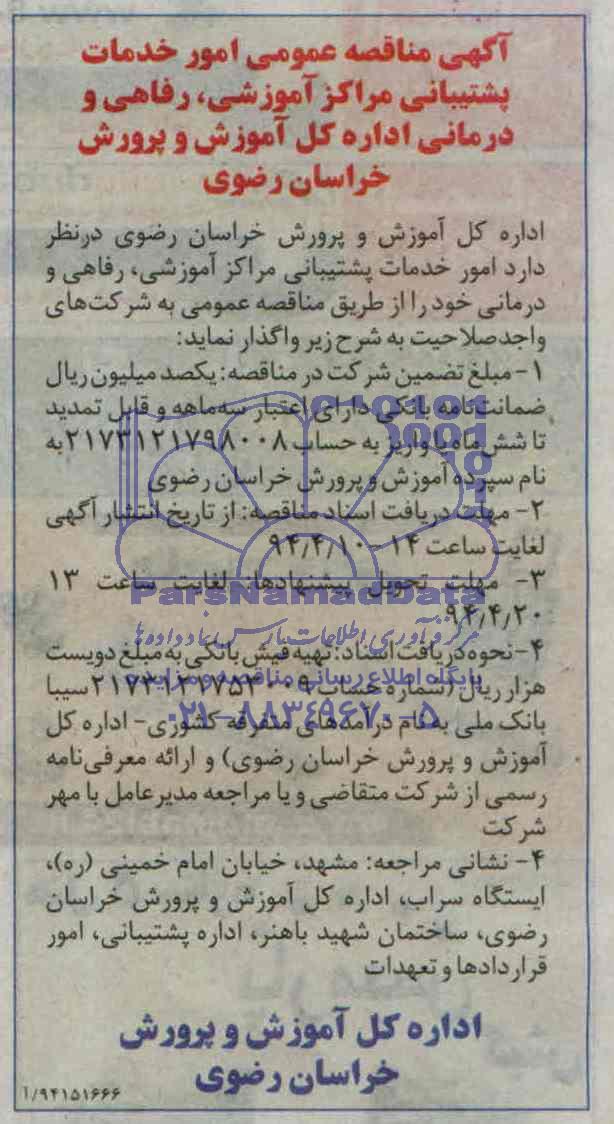 آگهی مناقصه عمومی امور خدمات
پشتیبانی مراکز آموزشی، رفاهی و
درمانی اداره کل آموزش و پرورش
خراسان رضوی
اداره کل آموزش و پرورش خراسان رضوی درنظر
دارد امور خدمات پشتیبانی مراکز آموزشی، رفاهی و
درمانی خود را از طریق مناقصه عمومی به شرکت‌های
واجدصلاحیت به شرح زیر واگذار نماید:
۱- مبلغ تضمین شرکت در مناقصه: یکصد میلیون ریال
ضمانت‌نامه بانکی دارای اعتبار سه‌ماهه و قابل تمدید
تا شش ماه یا واریز به حساب ۲۱۷۳۱۲۱۷۹۸۰۰۸ به
نام سپرده آموزش و پرورش خراسان رضوی
۲- مهلت دریافت اسناد مناقصه: از تاریخ انتشار آگهی
لغایت ساعت ۱۴ - ۹۴/۴/۱۰
۳- مهلت تحویل پیشنهادها: لغایت ساعت ۱۳
۹۴/۴/۲۰
ParsNamadData
مرکز فرآوری اطلاعات پارس نماد داده‌ها
۴- نحوه دریافت اسناد: تهیه فیش بانکی به مبلغ دویست
پایگاه اطلاع رسانی مناقصه و مزایده
هزار ریال (شماره حساب ۲۱۷۳۱۲۱۷۵۳۰۰۹ سیبا
۰۲۱-۸۸۳۴۹۶۷۰-۵
بانک ملی به نام درآمدهای متفرقه کشوری- اداره کل
آموزش و پرورش خراسان رضوی) و ارائه معرفی‌نامه
رسمی از شرکت متقاضی و یا مراجعه مدیرعامل با مهر
شرکت
۴- نشانی مراجعه: مشهد، خیابان امام خمینی (ره)،
ایستگاه سراب، اداره کل آموزش و پرورش خراسان
رضوی، ساختمان شهید باهنر، اداره پشتیبانی، امور
قراردادها و تعهدات
اداره کل آموزش و پرورش
خراسان رضوی
۱/۹۴۱۵۱۶۶۶